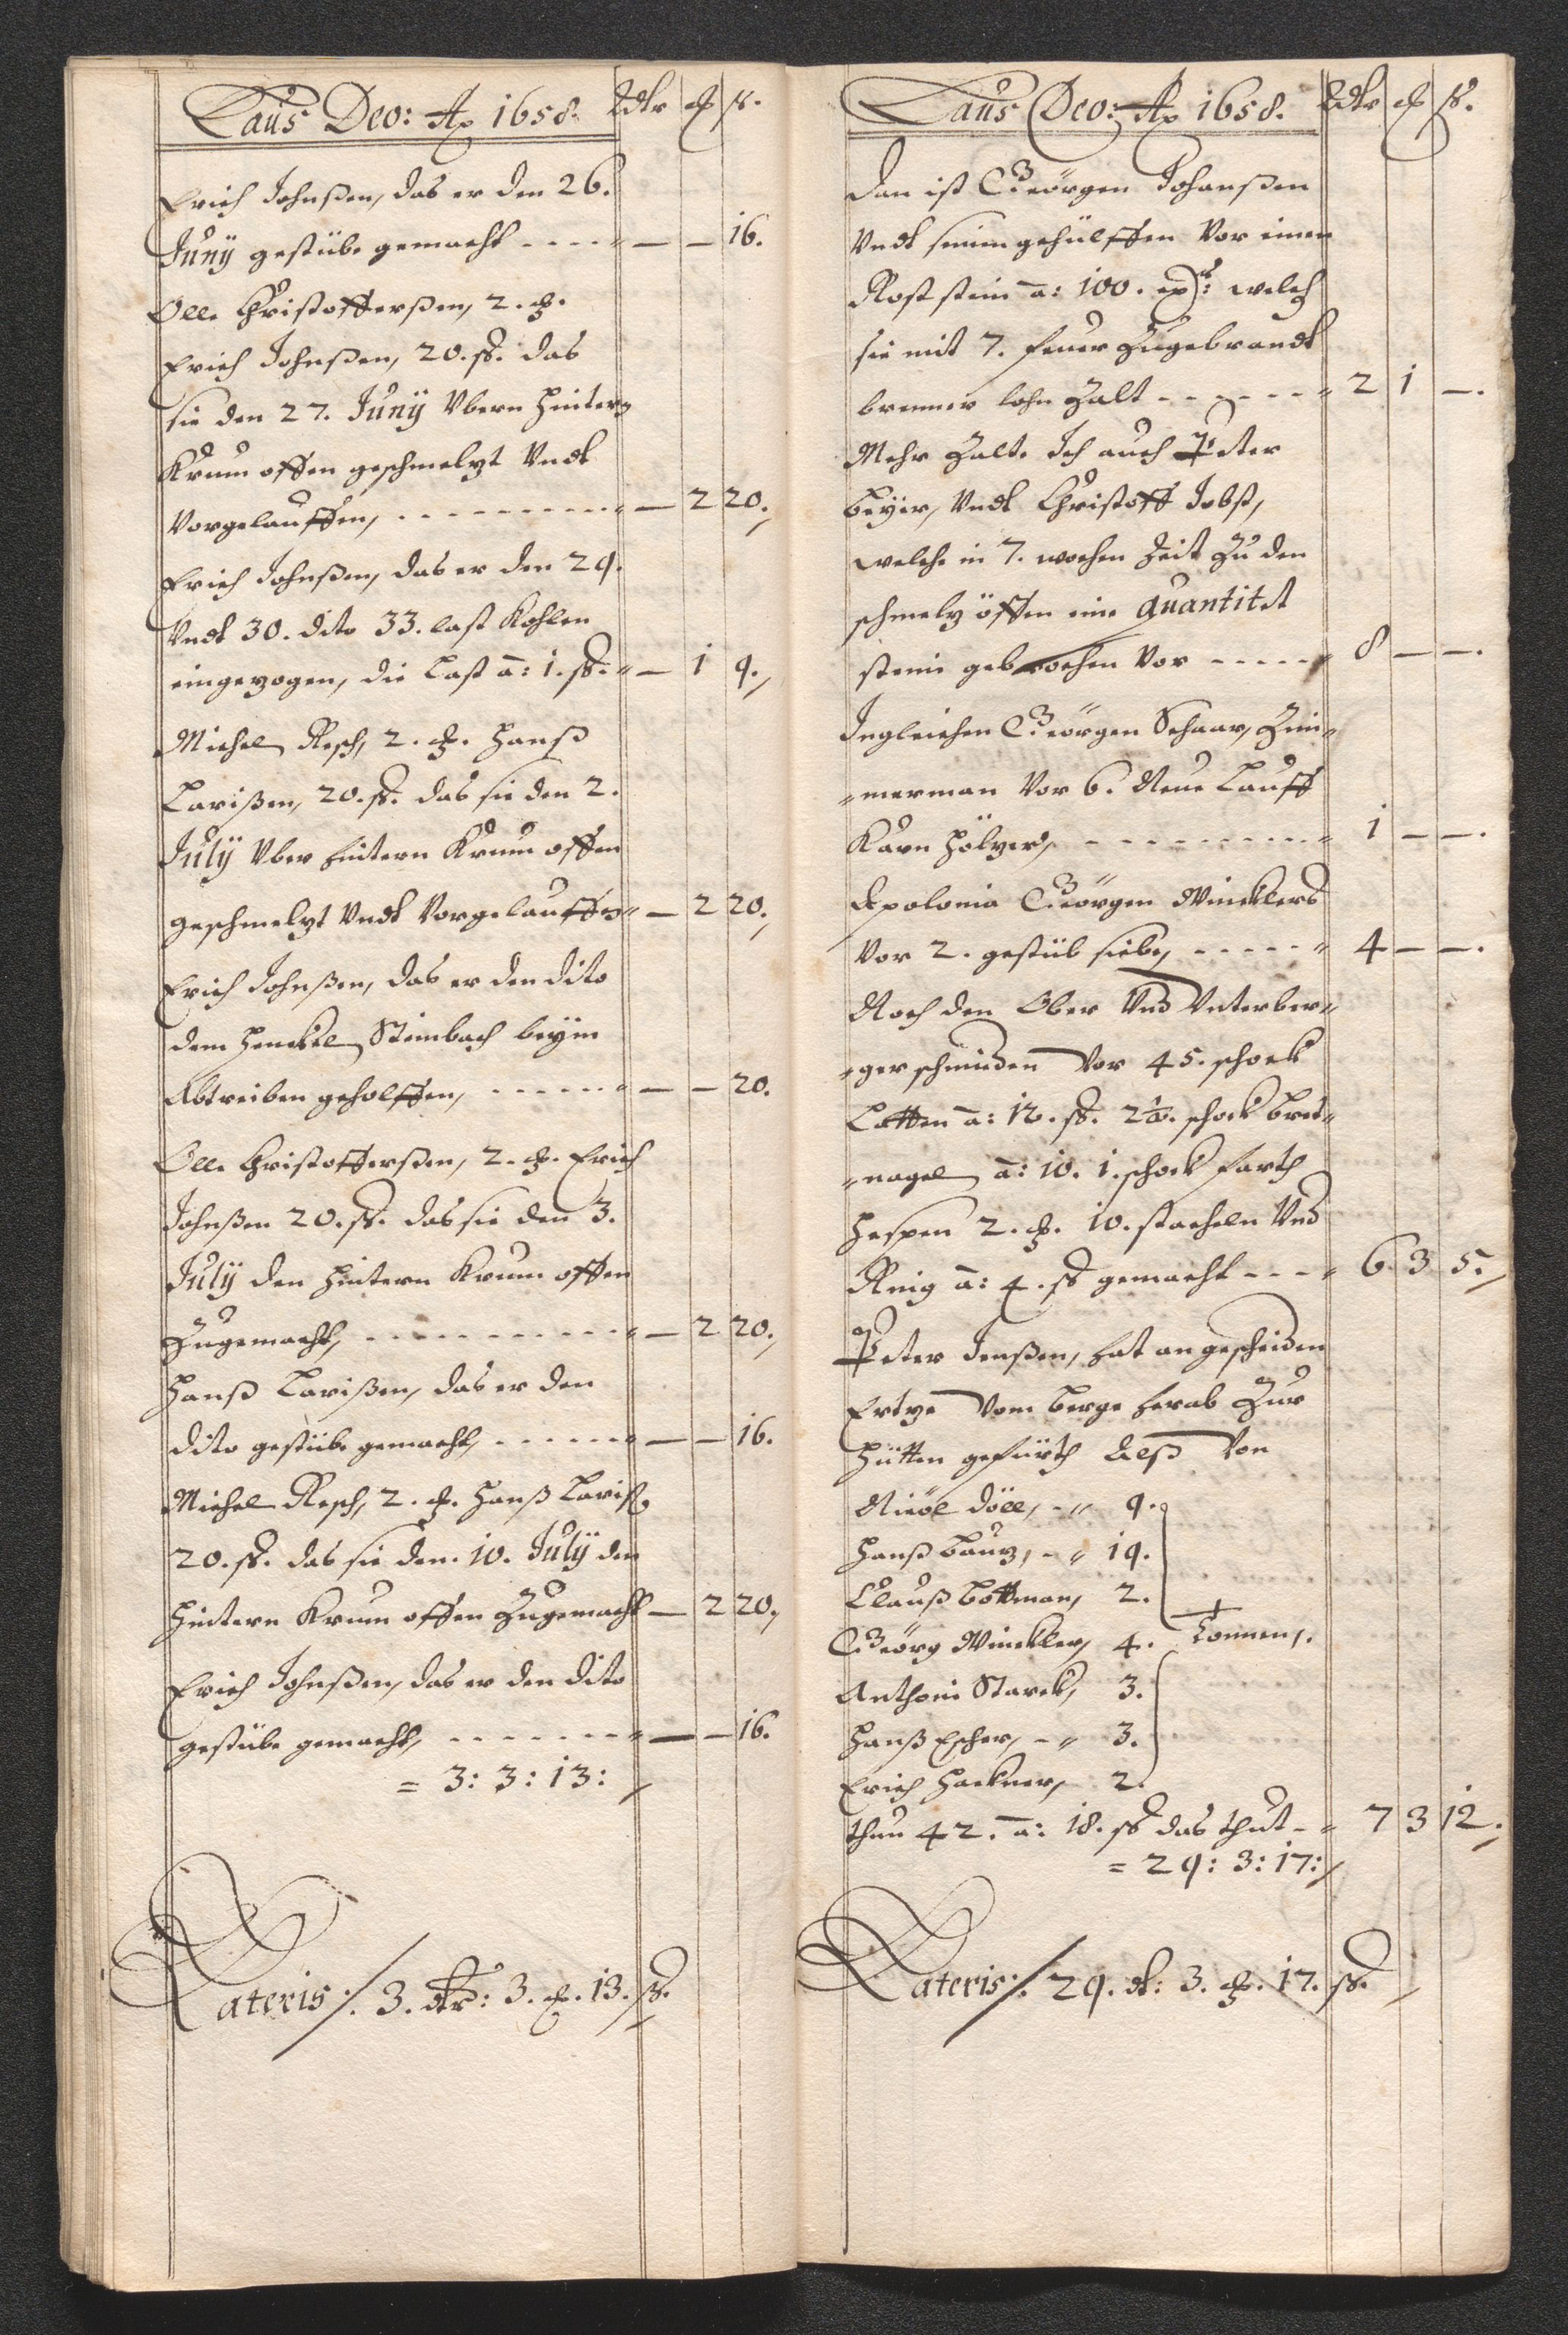 Laus Deo: Ao 1658. Rdtr ₰ ß.
Erich Johnßen, das er den 26.
Junÿ gestübe gemacht - - - - " — — 16.
Olle Christofferßen, 2. ₰.
Erich Johnßen, 20. ß. das
sie den 27. Junÿ Vbern hintern
Krum offen geschmeltzt Vndt
Vorgelauffen, - - - - - - " — 2 20.
Erich Johnßen, das er den 29.
Vndt 30. dito 33. last Kohlen
eingezogen, die Last a: 1. ß. " — 1 9.
Michel Resch, 2. ₰. Hanß
Larißen, 20. ß. das sie den 2.
Julÿ Vber hintern Krum offen
geschmeltzt Vndt Vorgelauffen " — 2 20.
Erich Johnßen, das er den dito
dem Henckel Steinbach beÿm
Abtreiben geholffen, - - - - - " — — 20.
Olle Christofferßen, 2. ₰. Erich
Johnßen 20. ß. das sie den 3.
Julÿ den Hintern Krum offen
Zugemacht, - - - - - - - " — 2 20.
Hanß Larißen, das er den
dito gestübe gemacht, - - - - - " — — 16.
Michel Resch, 2. ₰. Hanß Lariß
20. ß. das sie den. 10. Julÿ den
Hintern Krum offen Zugemacht — 2 20.
Erich Johnßen, das er den dito
gestübe gemacht, - - - - - - " — — 16.
= 3: 3: 13:
Lateris:/. 3. dtr: 3. ₰. 13. ß.
Laus Deo: Ao 1658. Rdtr ₰ ß.
Dan ist Geörgen Johanßen
Vndt seinen gehülffen Vor einen
Rost stein a: 100. welch
sie mit 7. feuer Zugebrandt
brenner lohn Zalt - - - - - " 2 1 —.
Mehr Zalte Ich auch Peter
Beÿer, Vndt Christoff Jobst,
welche in 7. wochen Zeit Zu den
schmeltz öffen eine quantitet
steine gebrochen Vor - - - - - " 8 — —.
Ingleichen Geörgen Schaar, Zim-
-merman Vor 6. Neue Lauff
Karn höltzer, - - - - - - - " 1 — —.
Apolonia Geörgen Wincklers
Vor 2. gestüb siebe, - - - - - " 4 — —.
Noch den Ober Vnd Vnterber-
-gerschmieden Vor 45. schock
Latten a: 12. ß. 2½. schock bret-
-nagel a: 10. 1. schock farth
Haspen 2. ₰. 10. stacheln Vnd
Ring a: 4. ß gemacht - - - " 6 3 5.
Peter Jenßen, hat an gescheiden
Ertze Vom berge herab Zur
Hütten gefürth Alß Von
Nicöl Döll, - " 9.
Hanß Bautz, - " 19.
Clauß Bottman, 2.
Geörg Winckler, 4. Tonnen,.
Anthoni Starck, 3.
Hanß Escher, - " 3.
Erich Hackner, 2.
thun 42. a: 18. ß das thut - " 7 3 12.
= 29: 3: 17:
Lateris:/. 29. dt: 3. ₰. 17. ß.